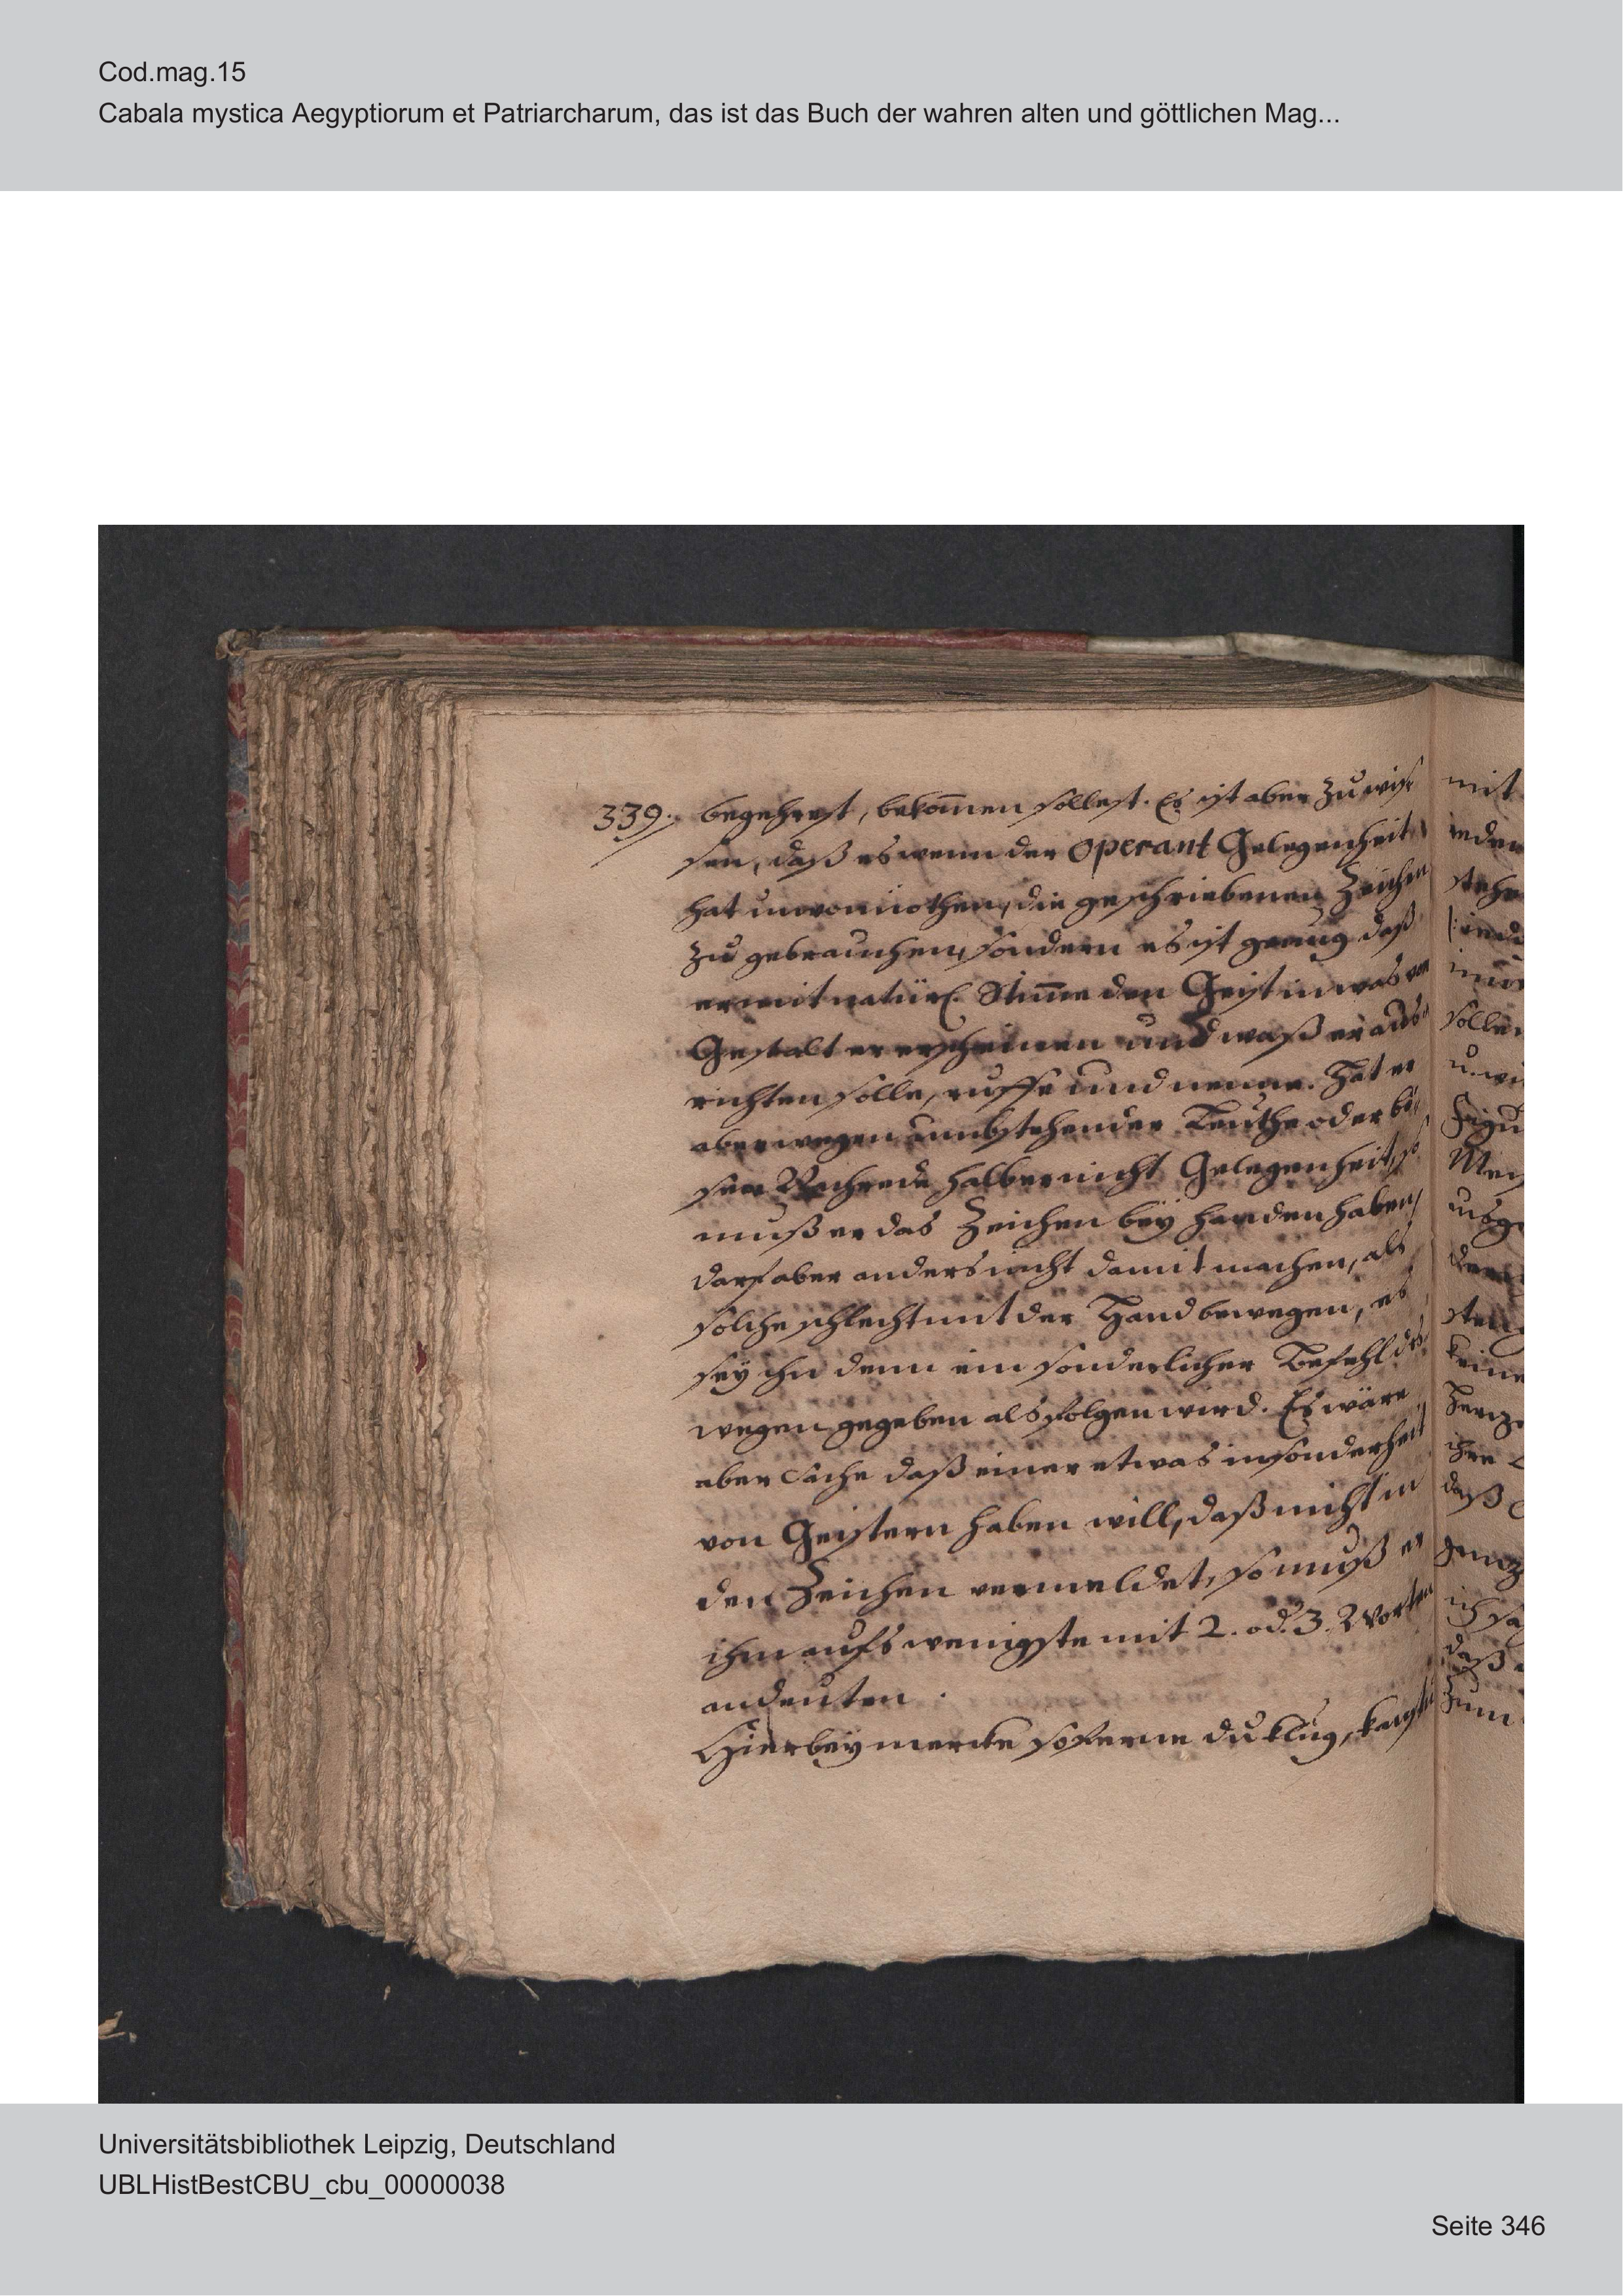 Cod.mag.15
Cabala mystica Aegyptiorum et Patriarcharum, das ist das Buch der wahren alten und göttlichen Mag...
339. begehrest, bekom̄en sollest. Es ist aber zu wis
sen, daß es wenn der operant Gelegenheit
hat unvonnöthen, die geschriebenen Zeichen
zu gebrauchen, sondern es ist genug daß
er mit natürl. Stim̄e den Geist in was vor
Gestalt er erscheinen und waß er aus
richten solle, ruffe und nenne. Hat er
aber wegen umbstehender Leuthe oder bö
ser Nachrede halber nicht Gelegenheit, so
muß er das Zeichen bey handen haben,
darf aber anders nicht damit machen, als
solche schlecht mit der Hand bewegen, es
sey ihn denn ein sonderlicher Befehl des
wegen gegeben als folgen wird. Es wäre
aber Sache daß einer etwas insonderheit
von Geistern haben will, daß nicht in
den Zeichen vermeldet, so muß er
ihm aufs wenigste mit 2. od. 3. Worten
andeuten.
Hierbey mercke soferne du klug,
mit
stehe
sollen
daß
zum
Universitätsbibliothek Leipzig, Deutschland
UBLHistBestCBU_cbu_00000038
Seite 346